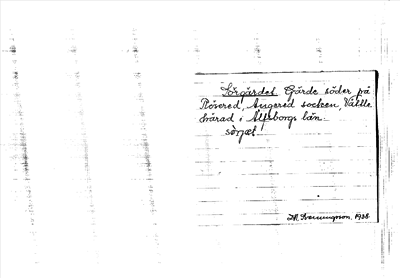 Sörgärdet Gärde söder på
Rövered, Angered socken, Vättle
härad i Älfsborgs län.
sörjæt
M. Svenungsson, 1928